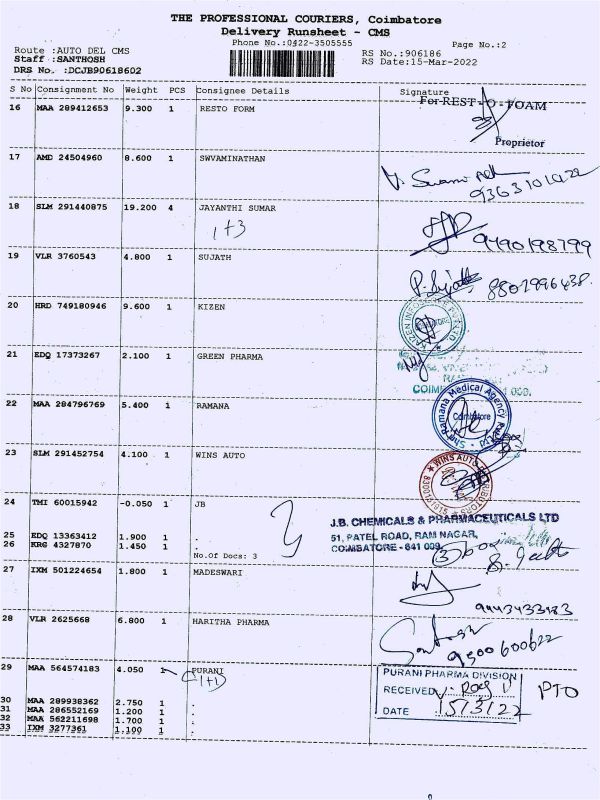 THE PROFESSIONAL COURIERS, Coimbatore
Delivery Runsheet - CMS
Phone No.:0422-3505555
Page No.:2
Route :AUTO DEL CMS
Staff :SANTHOSH
DRS No. :DCJB90618602
RS No.:906186
RS Date:15-Mar-2022
S No Consignment No Weight PCS Consignee Details Signature
16 MAA 289412653 9.300 1 RESTO FORM
For REST-O-FOAM
Proprietor
17 AMD 24504960 8.600 1 SWVAMINATHAN
9363101022
18 SLM 291440875 19.200 4 JAYANTHI SUMAR
1+3
9490198799
19 VLR 3760543 4.800 1 SUJATH
P. Sujath 8802996438
20 HRD 749180946 9.600 1 KIZEN
21 EDQ 17373267 2.100 1 GREEN PHARMA
22 MAA 284796769 5.400 1 RAMANA
Ramana Medical Agency
Coimbatore
23 SLM 291452754 4.100 1 WINS AUTO
WINS AUTO
24 TMI 60015942 -0.050 1 JB
J.B. CHEMICALS & PHARMACEUTICALS LTD
51, PATEL ROAD, RAM NAGAR,
COIMBATORE - 641 009.
25 EDQ 13363412 1.900 1 .
26 KRG 4327870 1.450 1 .
No.Of Docs: 3
27 IXM 501224654 1.800 1 MADESWARI
9443433183
28 VLR 2625668 6.800 1 HARITHA PHARMA
Santosh
9500600622
29 MAA 564574183 4.050 1 PURANI
(1+1)
PURANI PHARMA DIVISION
RECEIVED
DATE 15/3/22
PTO
30 MAA 289938362 2.750 1 .
31 MAA 286552169 1.200 1 .
32 MAA 562211698 1.700 1 .
33 IXM 3277361 1.100 1 .